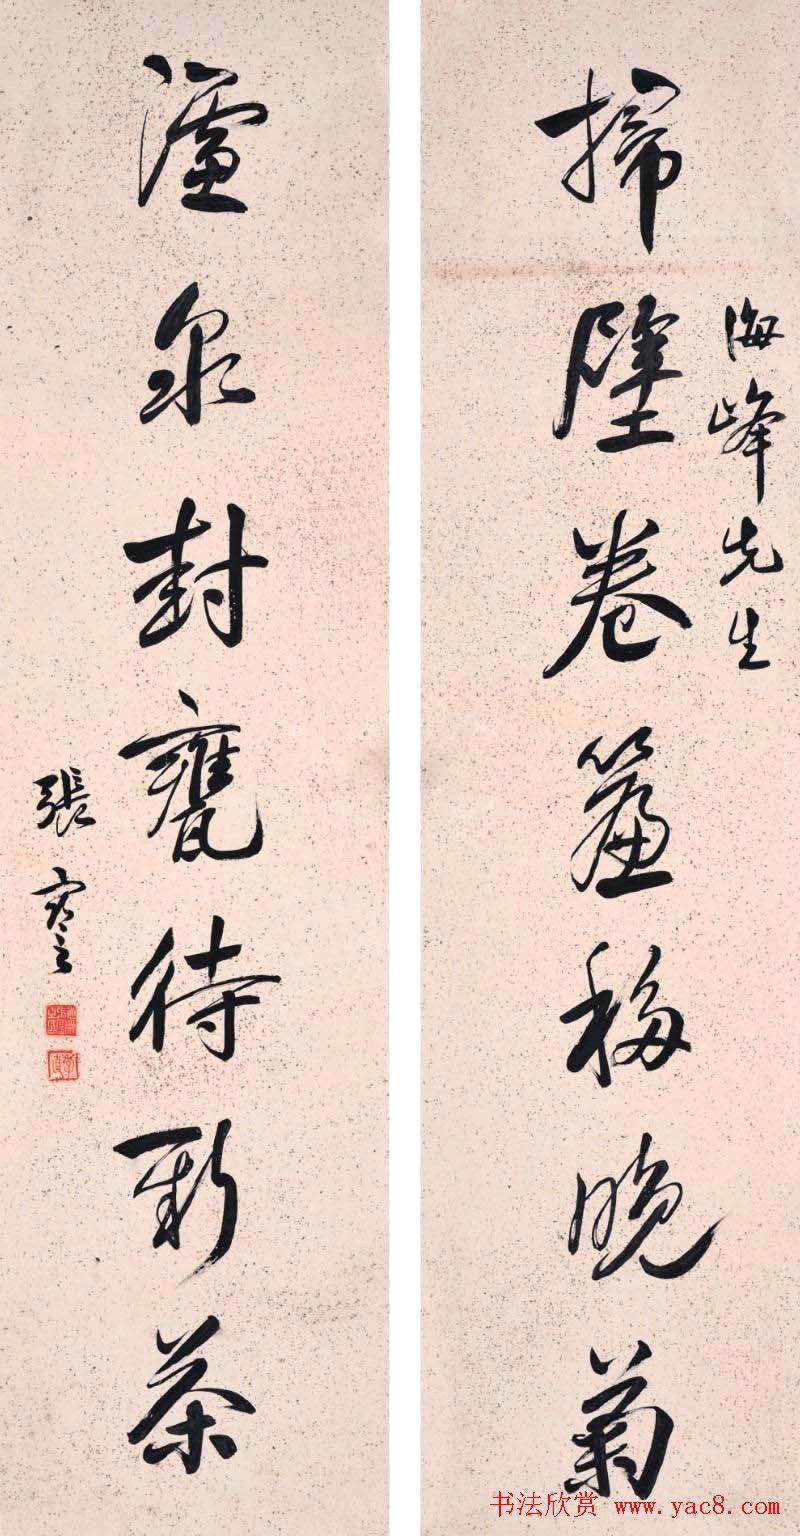 海峰先生
掃壁卷簾移晚菊
濾泉封甕待新茶
張謇
书法欣赏 www.yac8.com